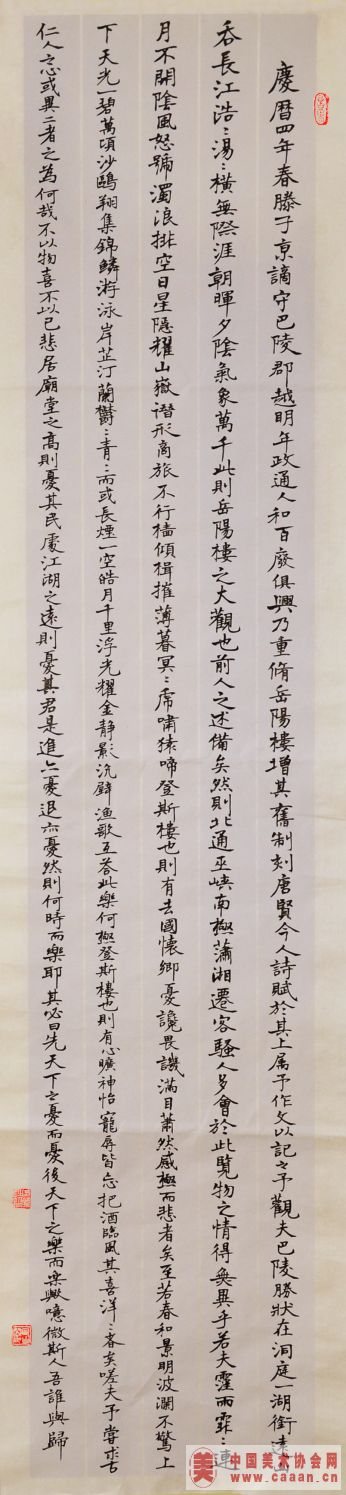 慶曆四年春滕子京謫守巴陵郡越明年政通人和百廢俱興乃重脩岳陽樓增其舊制刻唐賢今人詩賦於其上属予作文以記之予觀夫巴陵勝狀在洞庭一湖銜遠山
吞長江浩〻湯〻橫無際涯朝暉夕陰氣象萬千此則岳陽樓之大觀也前人之述備矣然則北通巫峽南極瀟湘遷客騷人多會於此覽物之情得無異乎若夫霪雨霏〻連
月不開陰風怒號濁浪排空日星隱耀山嶽潛形商旅不行檣傾楫摧薄暮冥〻虎嘯猿啼登斯樓也則有去國懷鄉憂讒畏譏滿目蕭然感極而悲者矣至若春和景明波瀾不驚上
下天光一碧萬頃沙鷗翔集錦鱗游泳岸芷汀蘭鬱〻青〻而或長煙一空皓月千里浮光耀金静影沉璧漁歌互答此樂何極登斯樓也則有心曠神怡寵辱皆忘把酒臨風其喜洋〻者矣嗟夫予嘗求古
仁人之心或異二者之為何哉不以物喜不以己悲居廟堂之高則憂其民處江湖之遠則憂其君是進亦憂退亦憂然則何時而樂耶其必曰先天下之憂而憂後天下之樂而樂歟噫微斯人吾誰與歸
美
中国美术协会网
www.caaan.cn